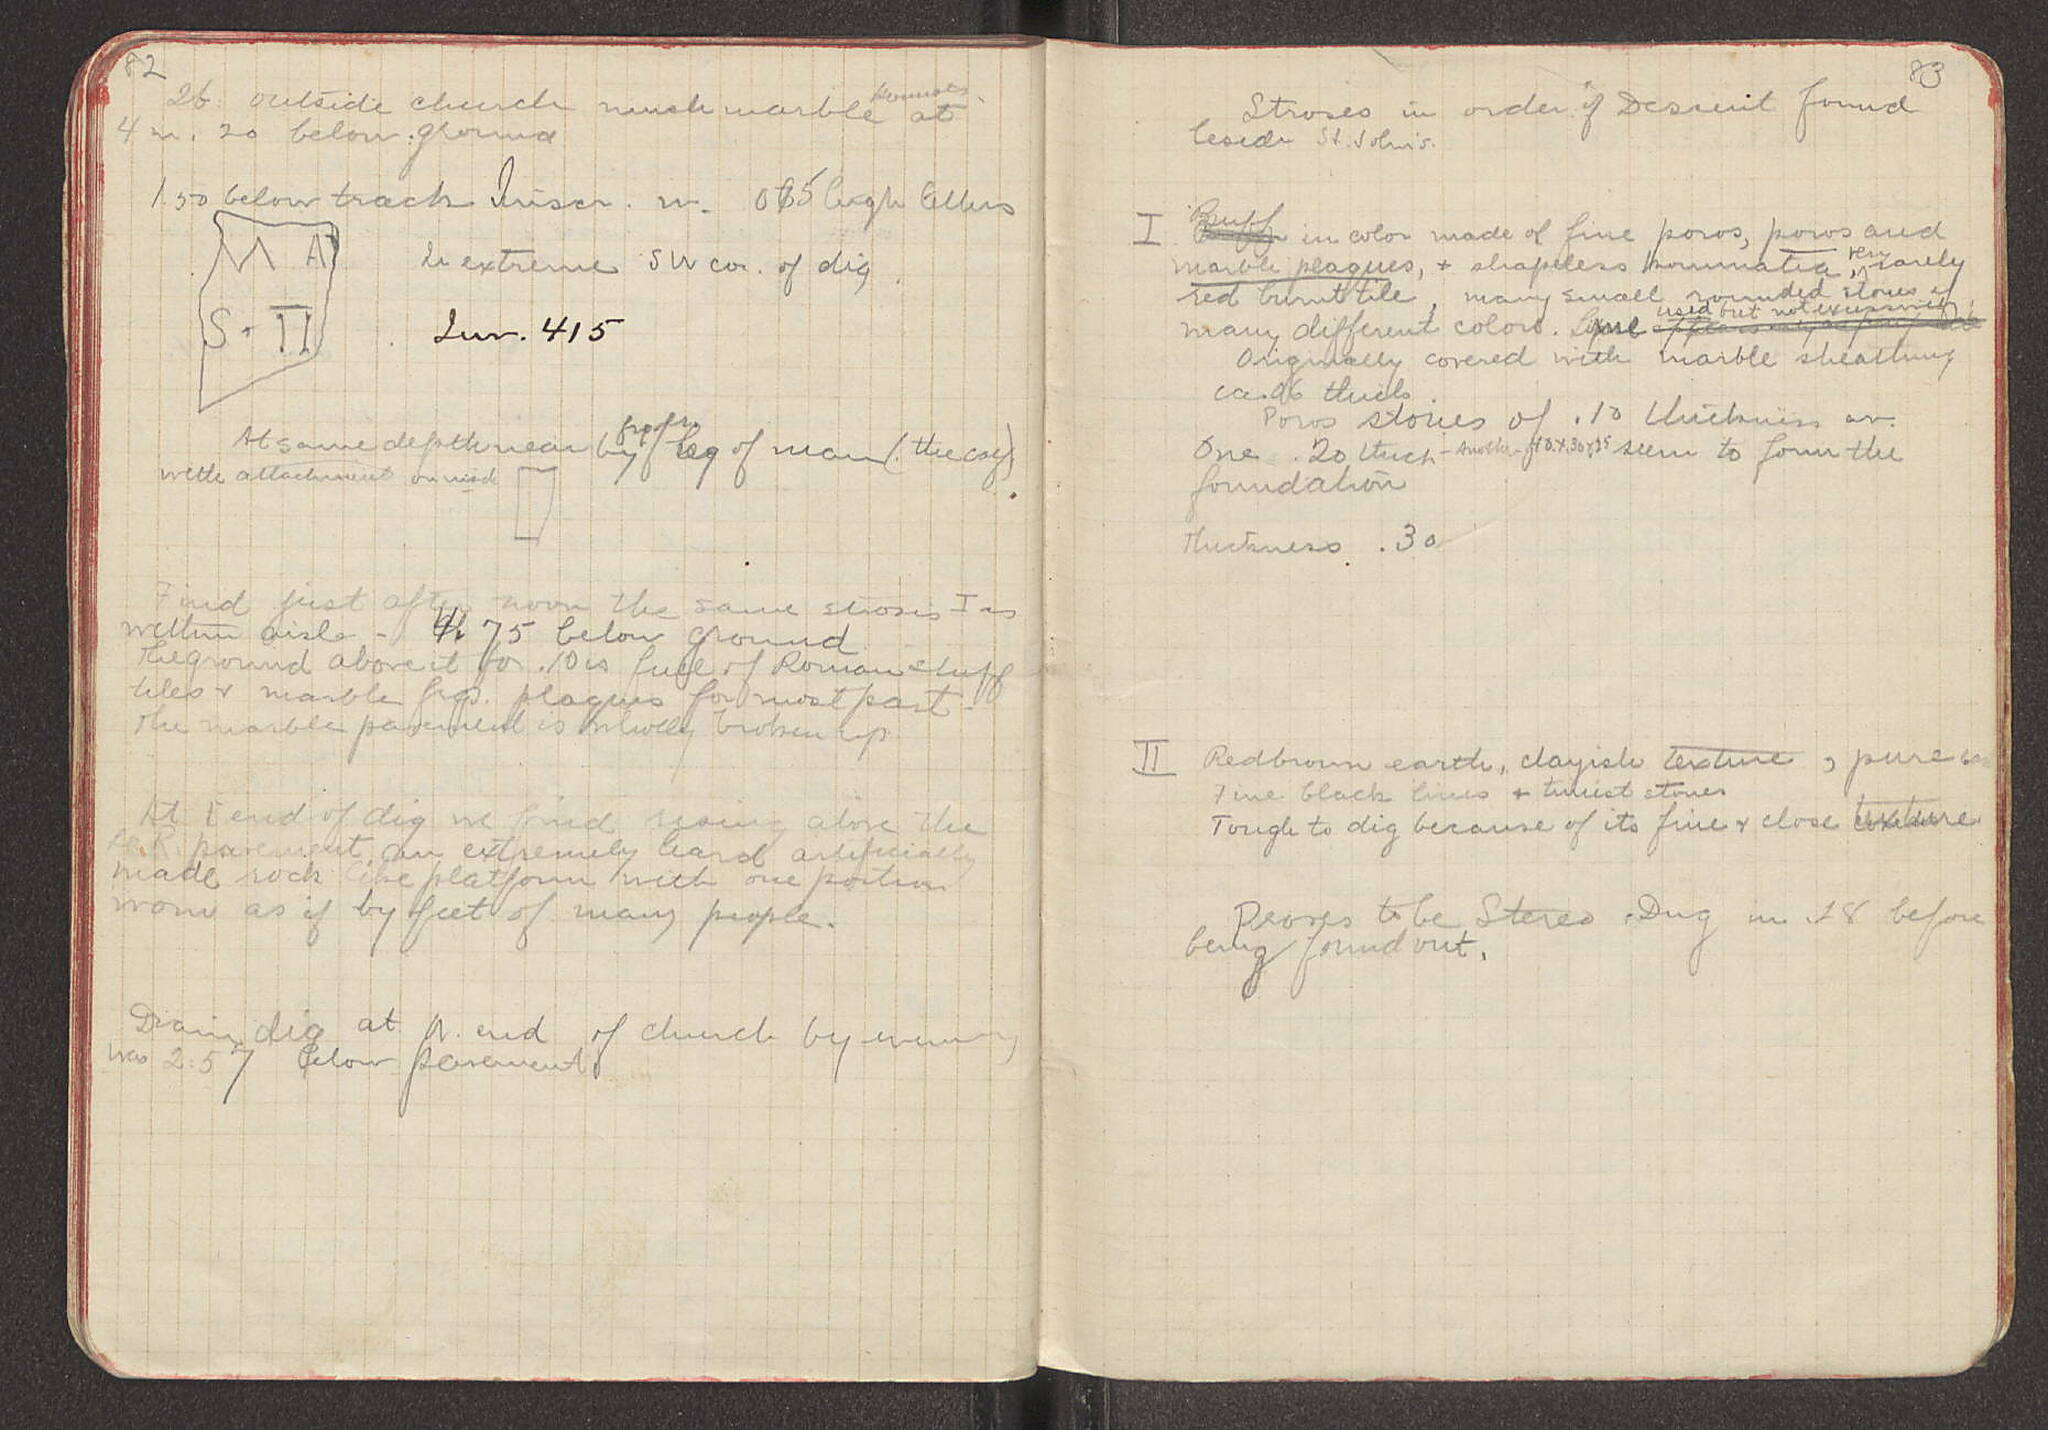 82
26 outside church much marble at
4 m. 20 below ground
1.50 below track Inscr. w. 065 high letters
M A
S · II
In extreme SW cor. of dig
Inv. 415
At same depth near by leg of man (the calf)
with attachment on
Find just after noon the same strosis I as
within aisle - 75 below ground
The ground above it for .10 is full of Roman stuff
tiles + marble frgs. plaques for most part -
The marble pavement is wholly broken up
At E end of dig we find rising above the
pavement an extremely hard artificially
made rock like platform with one portion
worn as if by feet of many people.
Drain dig at N. end of church by evening
was 2.57 below pavement
83
Stroses in order of Descent found
beside St. John's.
I Buff in color made of fine poros, poros and
marble plaques, + shapeless kommatia, very rarely
red burnt tile, many small rounded stones of
many different colors. Lime used but not excessively
Originally covered with marble sheathing
ca .06 thick
Poros stones of .10 thickness av.
One .20 thick - Another seem to form the
foundation
Thickness .30
II Redbrown earth, clayish texture, pure
Fine black lines + tiniest stones
Tough to dig because of its fine + close texture
Proves to be Stereo. Dug in .18 before
being found out.